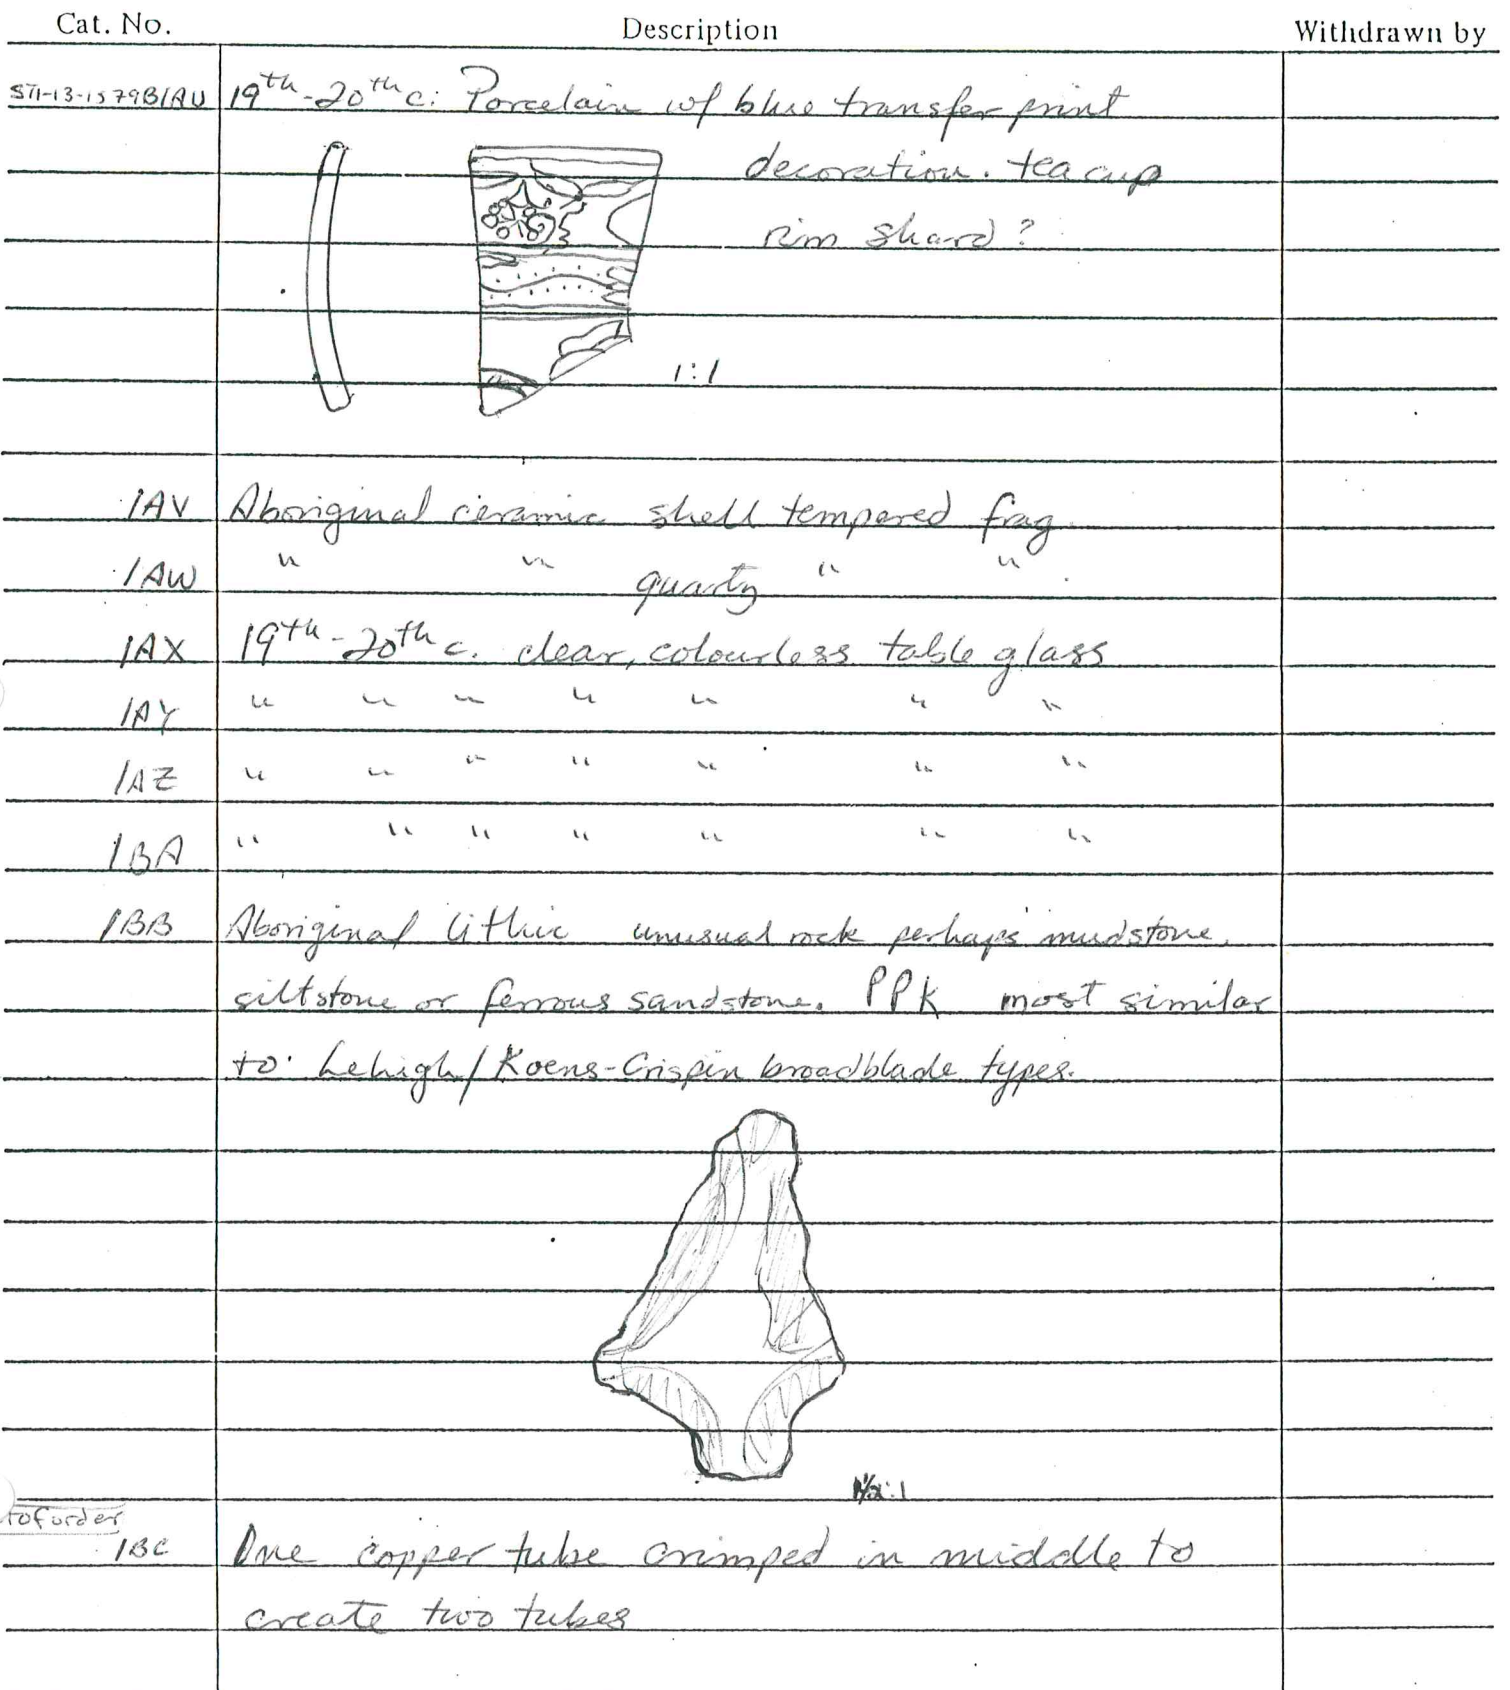 Cat. No. Description Withdrawn by
19th-20th c. Porcelain w/ blue transfer print
decoration. tea cup
rim shard?
1:1
/AV Aboriginal ceramic shell tempered frag.
/AW " " quartz " "
/AX 19th-20th c. clear, colourless table glass
/AY " " " " " " "
/AZ " " " " " " "
/BA " " " " " " "
/BB Aboriginal lithic unusual rock perhaps mudstone,
siltstone or ferrous sandstone. PPK most similar
to Lehigh/Koens-Crispin broadblade types.
:1
of order
/BC One copper tube crimped in middle to
create two tubes